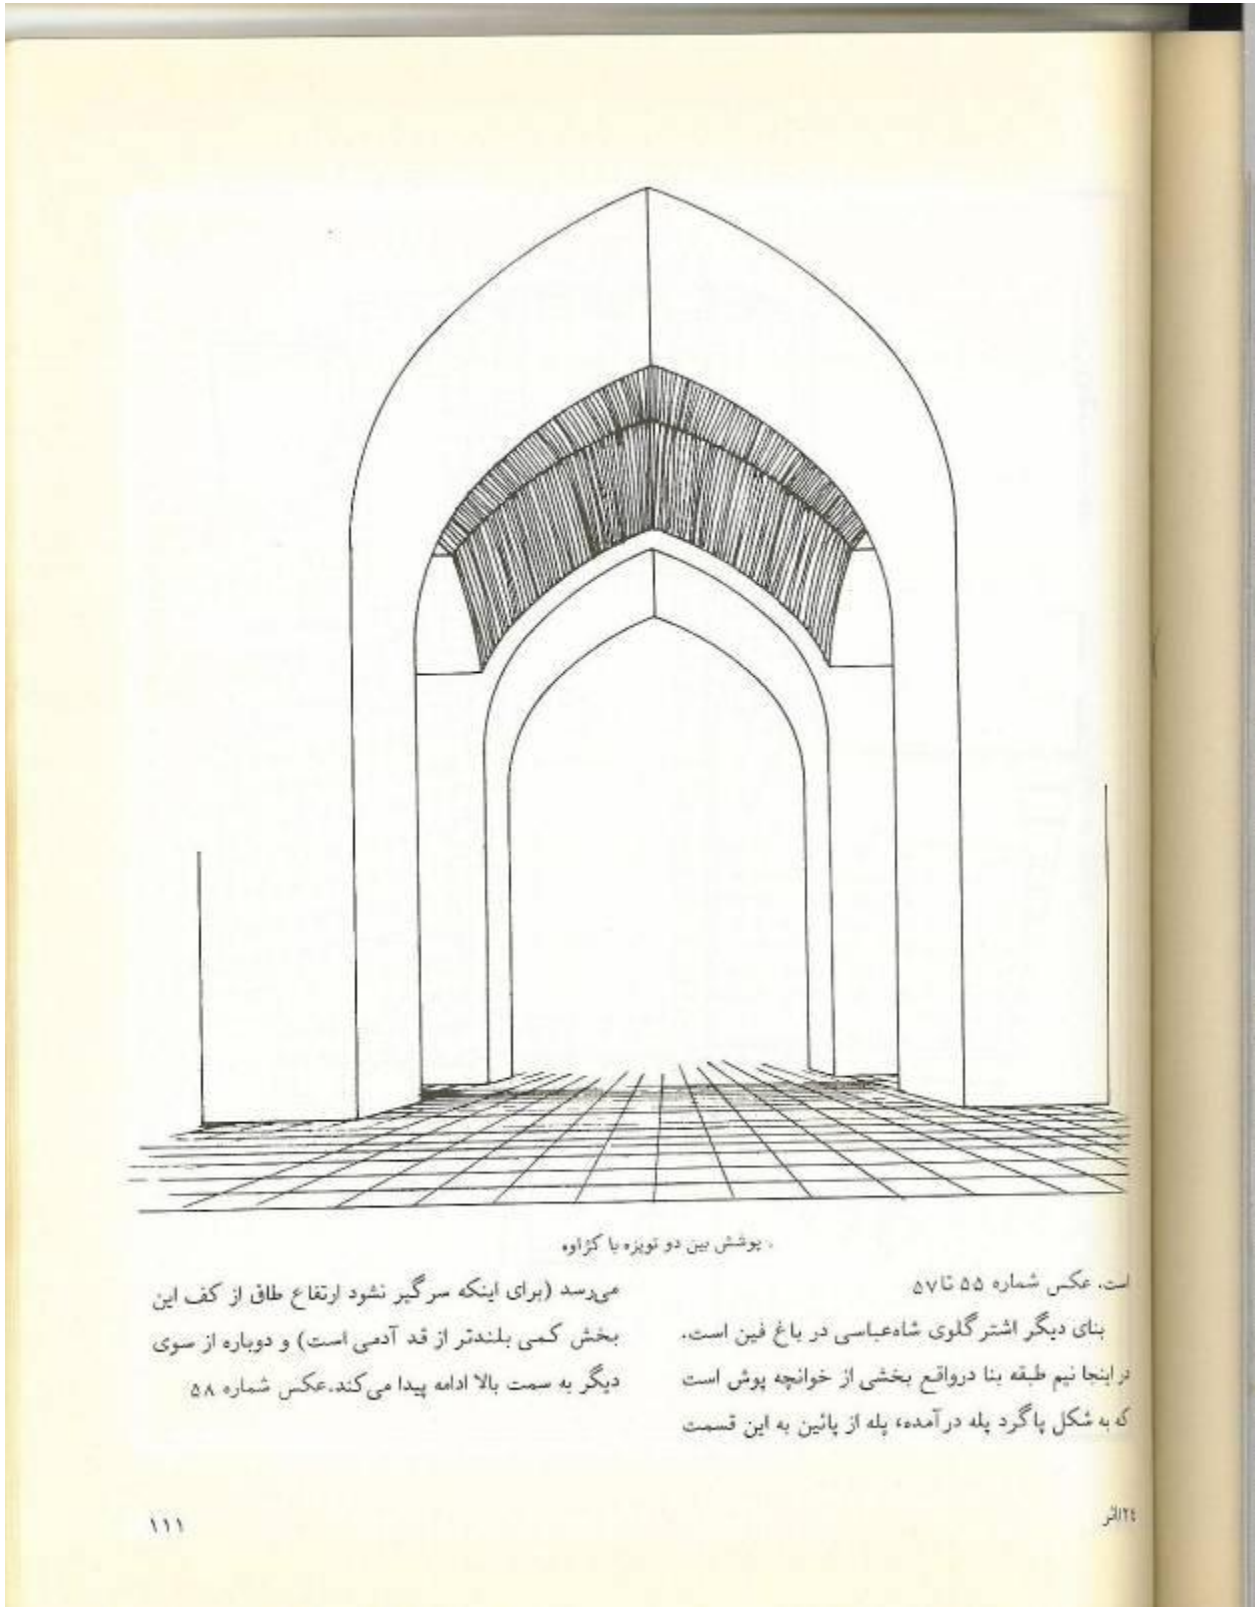 . پوشش بین دو تویزه با کژاوه
است. عکس شماره ۵۵ تا ۵۷
بنای دیگر اشتر گلوی شاه‌عباسی در باغ فین است.
در اینجا نیم طبقه بنا درواقع بخشی از خوانچه پوش است
که به شکل پاگرد پله در آمده، پله از پائین به این قسمت
می‌رسد (برای اینکه سرگیر نشود ارتفاع طاق از کف این
بخش کمی بلندتر از قد آدمی است) و دوباره از سوی
دیگر به سمت بالا ادامه پیدا می‌کند.عکس شماره ۵۸
۱۲۴اثر
۱۱۱